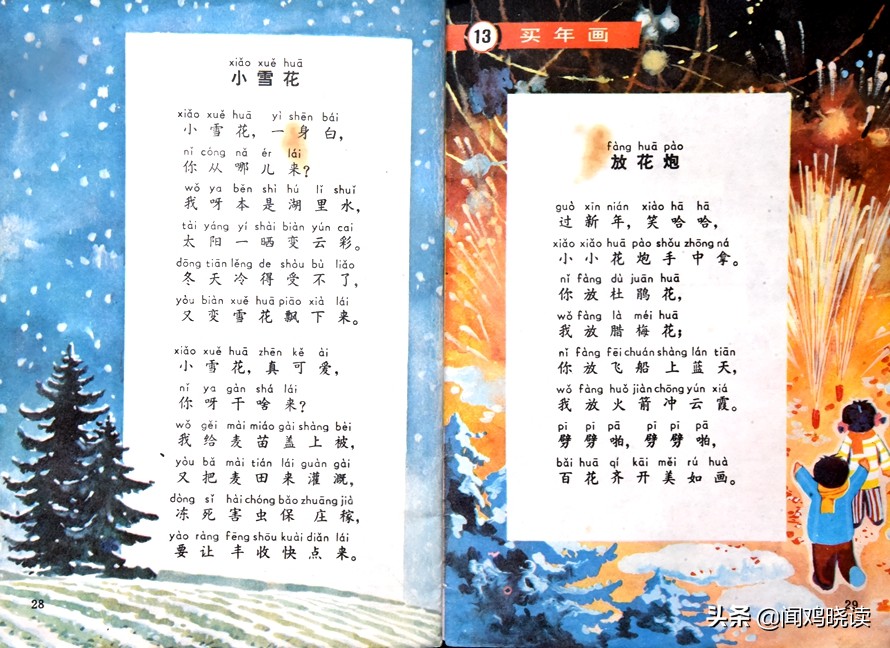 xiǎo xuě huā
小雪花
xiǎo xuě huā yì shēn bái
小雪花，一身白，
nǐ cóng nǎ ér lái
你从哪儿来？
wǒ ya běn shì hú lǐ shuǐ
我呀本是湖里水，
tài yáng yí shài biàn yún cai
太阳一晒变云彩。
dōng tiān lěng de shòu bù liǎo
冬天冷得受不了，
yòu biàn xuě huā piāo xià lái
又变雪花飘下来。
xiǎo xuě huā zhēn kě ài
小雪花，真可爱，
nǐ ya gàn shá lái
你呀干啥来？
wǒ gěi mài miáo gài shàng bèi
我给麦苗盖上被，
yòu bǎ mài tián lái guàn gài
又把麦田来灌溉，
dòng sǐ hài chóng bǎo zhuāng jià
冻死害虫保庄稼，
yào ràng fēng shōu kuài diǎn lái
要让丰收快点来。
28
13 买年画
fàng huā pào
放花炮
guò xīn nián xiào hā hā
过新年，笑哈哈，
xiǎo xiǎo huā pào shǒu zhōng ná
小小花炮手中拿。
nǐ fàng dù juān huā
你放杜鹃花，
wǒ fàng là méi huā
我放腊梅花；
nǐ fàng fēi chuán shàng lán tiān
你放飞船上蓝天，
wǒ fàng huǒ jiàn chōng yún xiá
我放火箭冲云霞。
pī pī pā pī pī pā
劈劈啪，劈劈啪，
bǎi huā qí kāi měi rú huà
百花齐开美如画。
29
头条 @闻鸡晓读